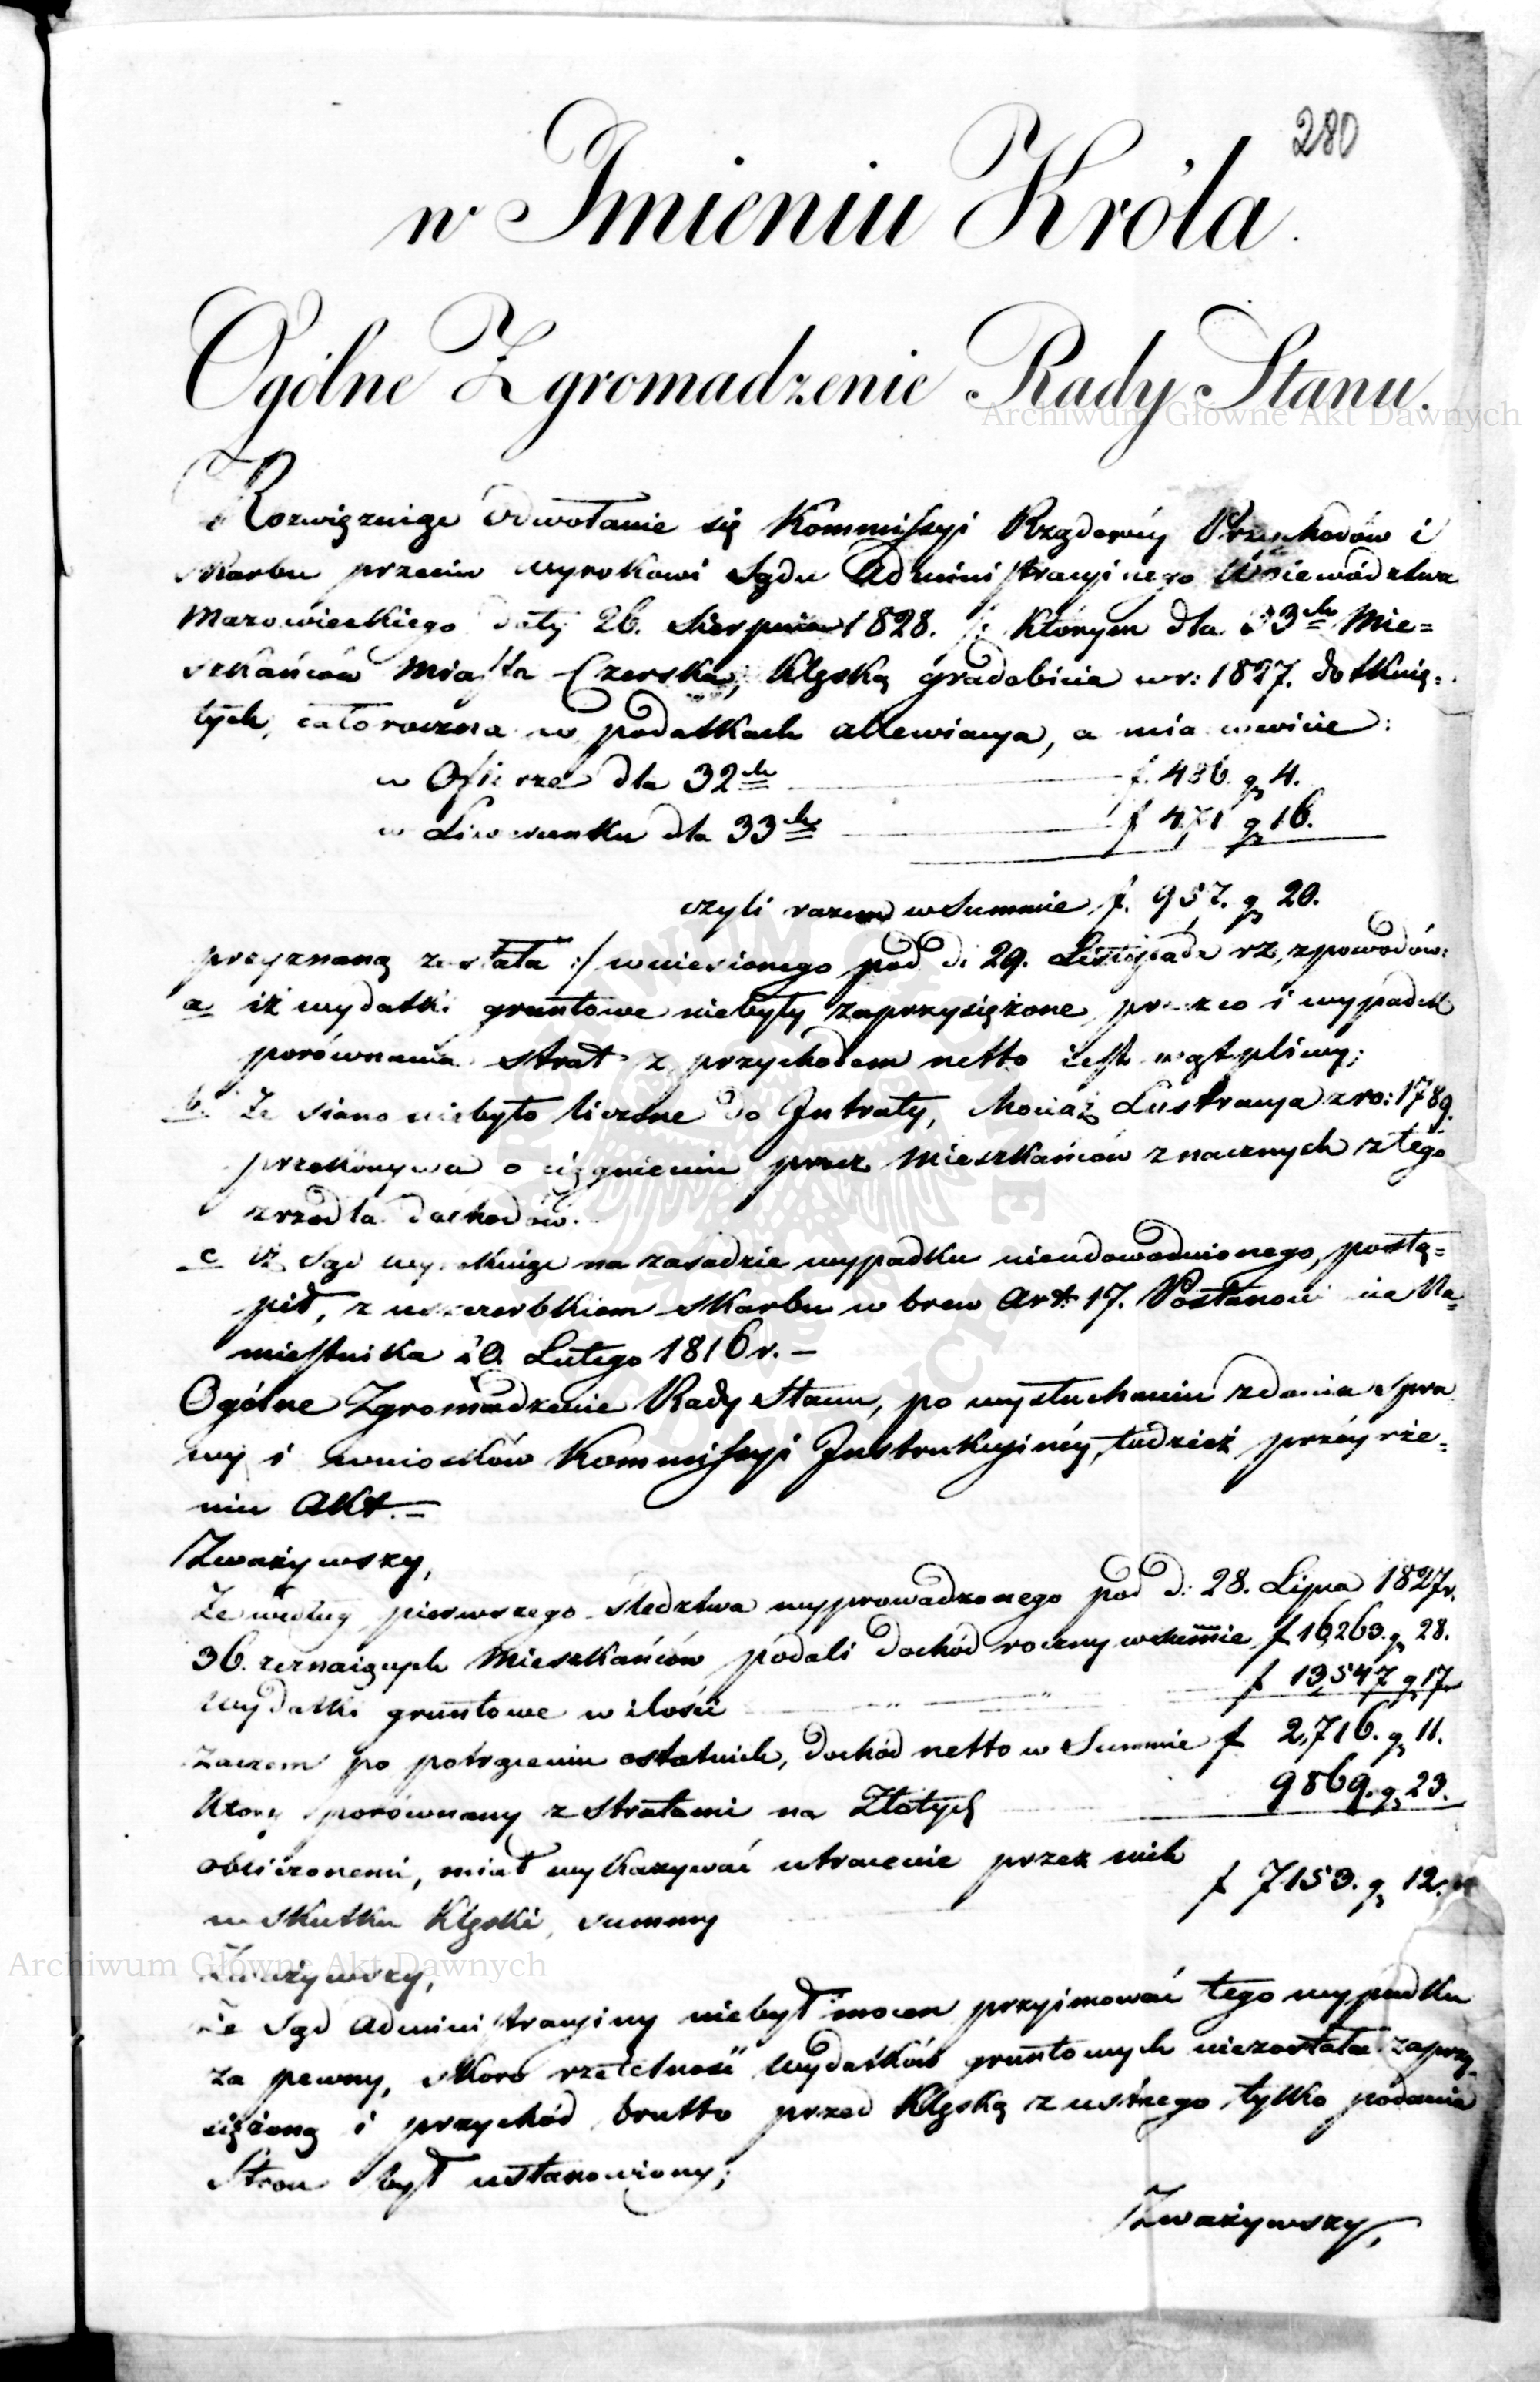 280
w Imieniu Króla.
Ogólne Zgromadzenie Rady Stanu.
Archiwum Główne Akt Dawnych
Rozwiązuiąc odwołanie się Kommissyi Rządowéy Przychodów i
Skarbu przeciw wyrokowi Sądu Administracyinego Woiewództwa
Mazowieckiego daty 26. Sierpnia 1828. /: którym dla 33ch Mie=
szkańców Miasta Czerska, klęską gradobicia w r: 1827. dotknię=
tych, całoroczna w podatkach allewiacya, a mianowicie:
w Ofierze dla 32ch f. 486. g 4.
w Liwerunku dla 33ch f 471 g 16.
czyli razem w Summie f. 957. g 20.
przyznaną została :/ wniesionego pod d: 29. Listopada rz, z powodów:
a iż wydatki gruntowe niebyły zaprzysiężone, przeco i wypadek
porównania strat z przychodem netto iest wątpliwy;
b. Że siano niebyło liczone do Intraty, chociaż Lustracya z ro: 1789.
przekonywa o ciągnieniu przez Mieszkańców znacznych z tego
zrzódła dochodów.
c iż Sąd wyrokuiąc na zasadzie wypadku nieudowodnionego, postą=
pił, z uszczerbkiem skarbu w brew Art: 17. Postanowienia Na=
miestnika 10. Lutego 1816 r. –
Ogólne Zgromadzenie Rady Stanu, po wysłuchaniu zdania spra
wy i wniosków Kommissyi Instrukcyinéy, tudzież przéyrze=
niu Akt. =
Zważywszy,
Że według pierwszego śledztwa wyprowadzonego pod d: 28. Lipca 1827 r.
36. zeznaiących Mieszkańców podali dochód roczny w summie f 16,263. g 28.
Wydatki gruntowe w ilości f 13,547 g 17.
zaczem po potrąceniu ostatnich, dochód netto w Summie f 2,716. g 11.
który porównany z stratami na Złotych 9869. g 23.
obliczonemi, miał wykazywać utracenie przez nich
w skutku klęski, summy f 7153. g 12.
Archiwum Główne Akt Dawnych
Zważywszy,
Że Sąd Administracyiny niebył mocen przyimować tego wypadku
za pewny, skoro rzetelność Wydatków gruntowych niezostała zaprzy
siężoną i przychód brutto przed klęską z ustnego tylko podania
Stron był ustanowiony;
Zważywszy,